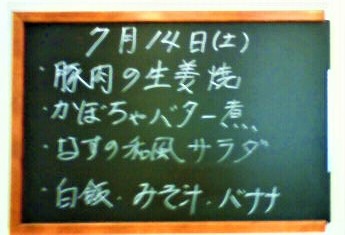 7月14日(土)
・豚肉の生姜焼
・かぼちゃバター煮
・なすの和風サラダ
・白飯・みそ汁・バナナ